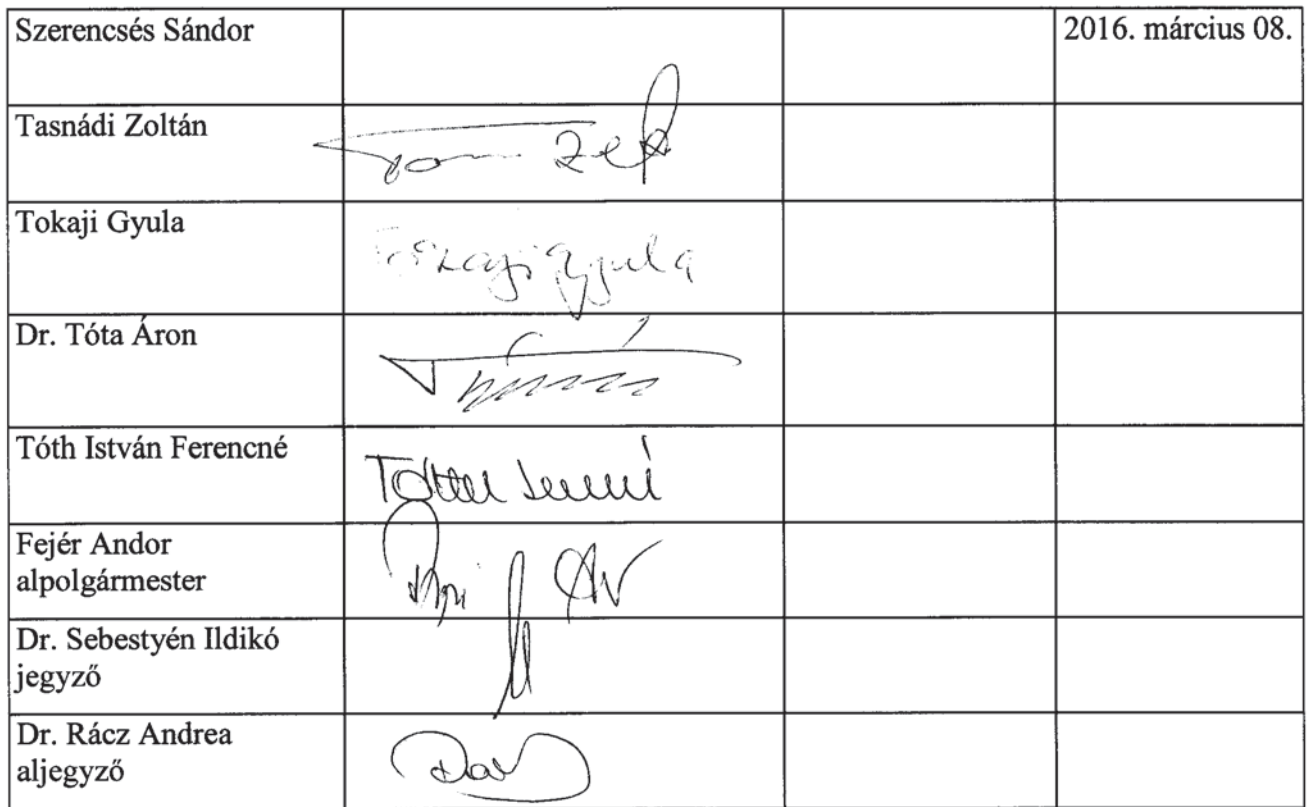 Szerencsés Sándor 2016. március 08.
Tasnádi Zoltán
Tokaji Gyula
Tokaji Gyula
Dr. Tóta Áron
Tóth István Ferencné
Fejér Andor
alpolgármester
Dr. Sebestyén Ildikó
jegyző
Dr. Rácz Andrea
aljegyző